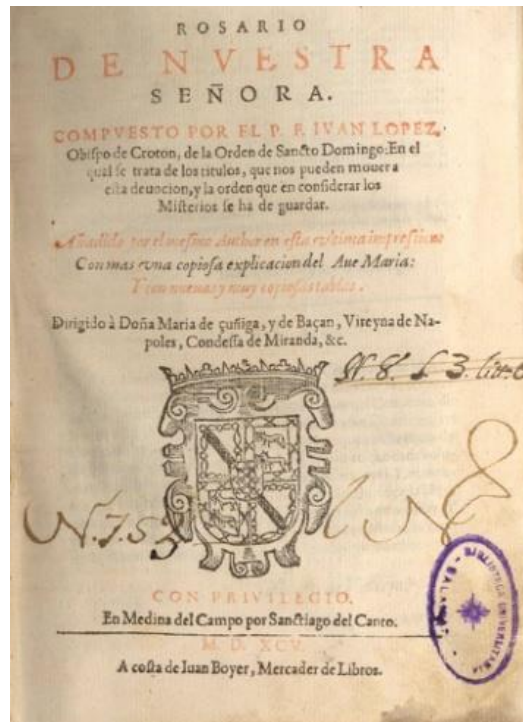 ROSARIO
DE NVESTRA
SEÑORA.
COMPVESTO POR EL P. F. IVAN LOPEZ,
Obiſpo de Croton, de la Orden de Sancto Domingo: En el
qual ſe trata de los titulos, que nos pueden mouer a
eſta deuocion, y la orden que en conſiderar los
Miſterios ſe ha de guardar.
Añadido por el meſmo Author en eſta vltima impreſsion
Con mas vna copioſa explicacion del Aue Maria:
Y con nueuas y muy copioſas tablas.
Dirigido à Doña Maria de çuñiga, y de Baçan, Vireyna de Na-
poles, Condeſſa de Miranda, &c.
CON PRIVILEGIO.
En Medina del Campo por Sanctiago del Canto.
M. D. XCV.
A coſta de Iuan Boyer, Mercader de Libros.
BIBLIOTECA UNIVERSITARIA